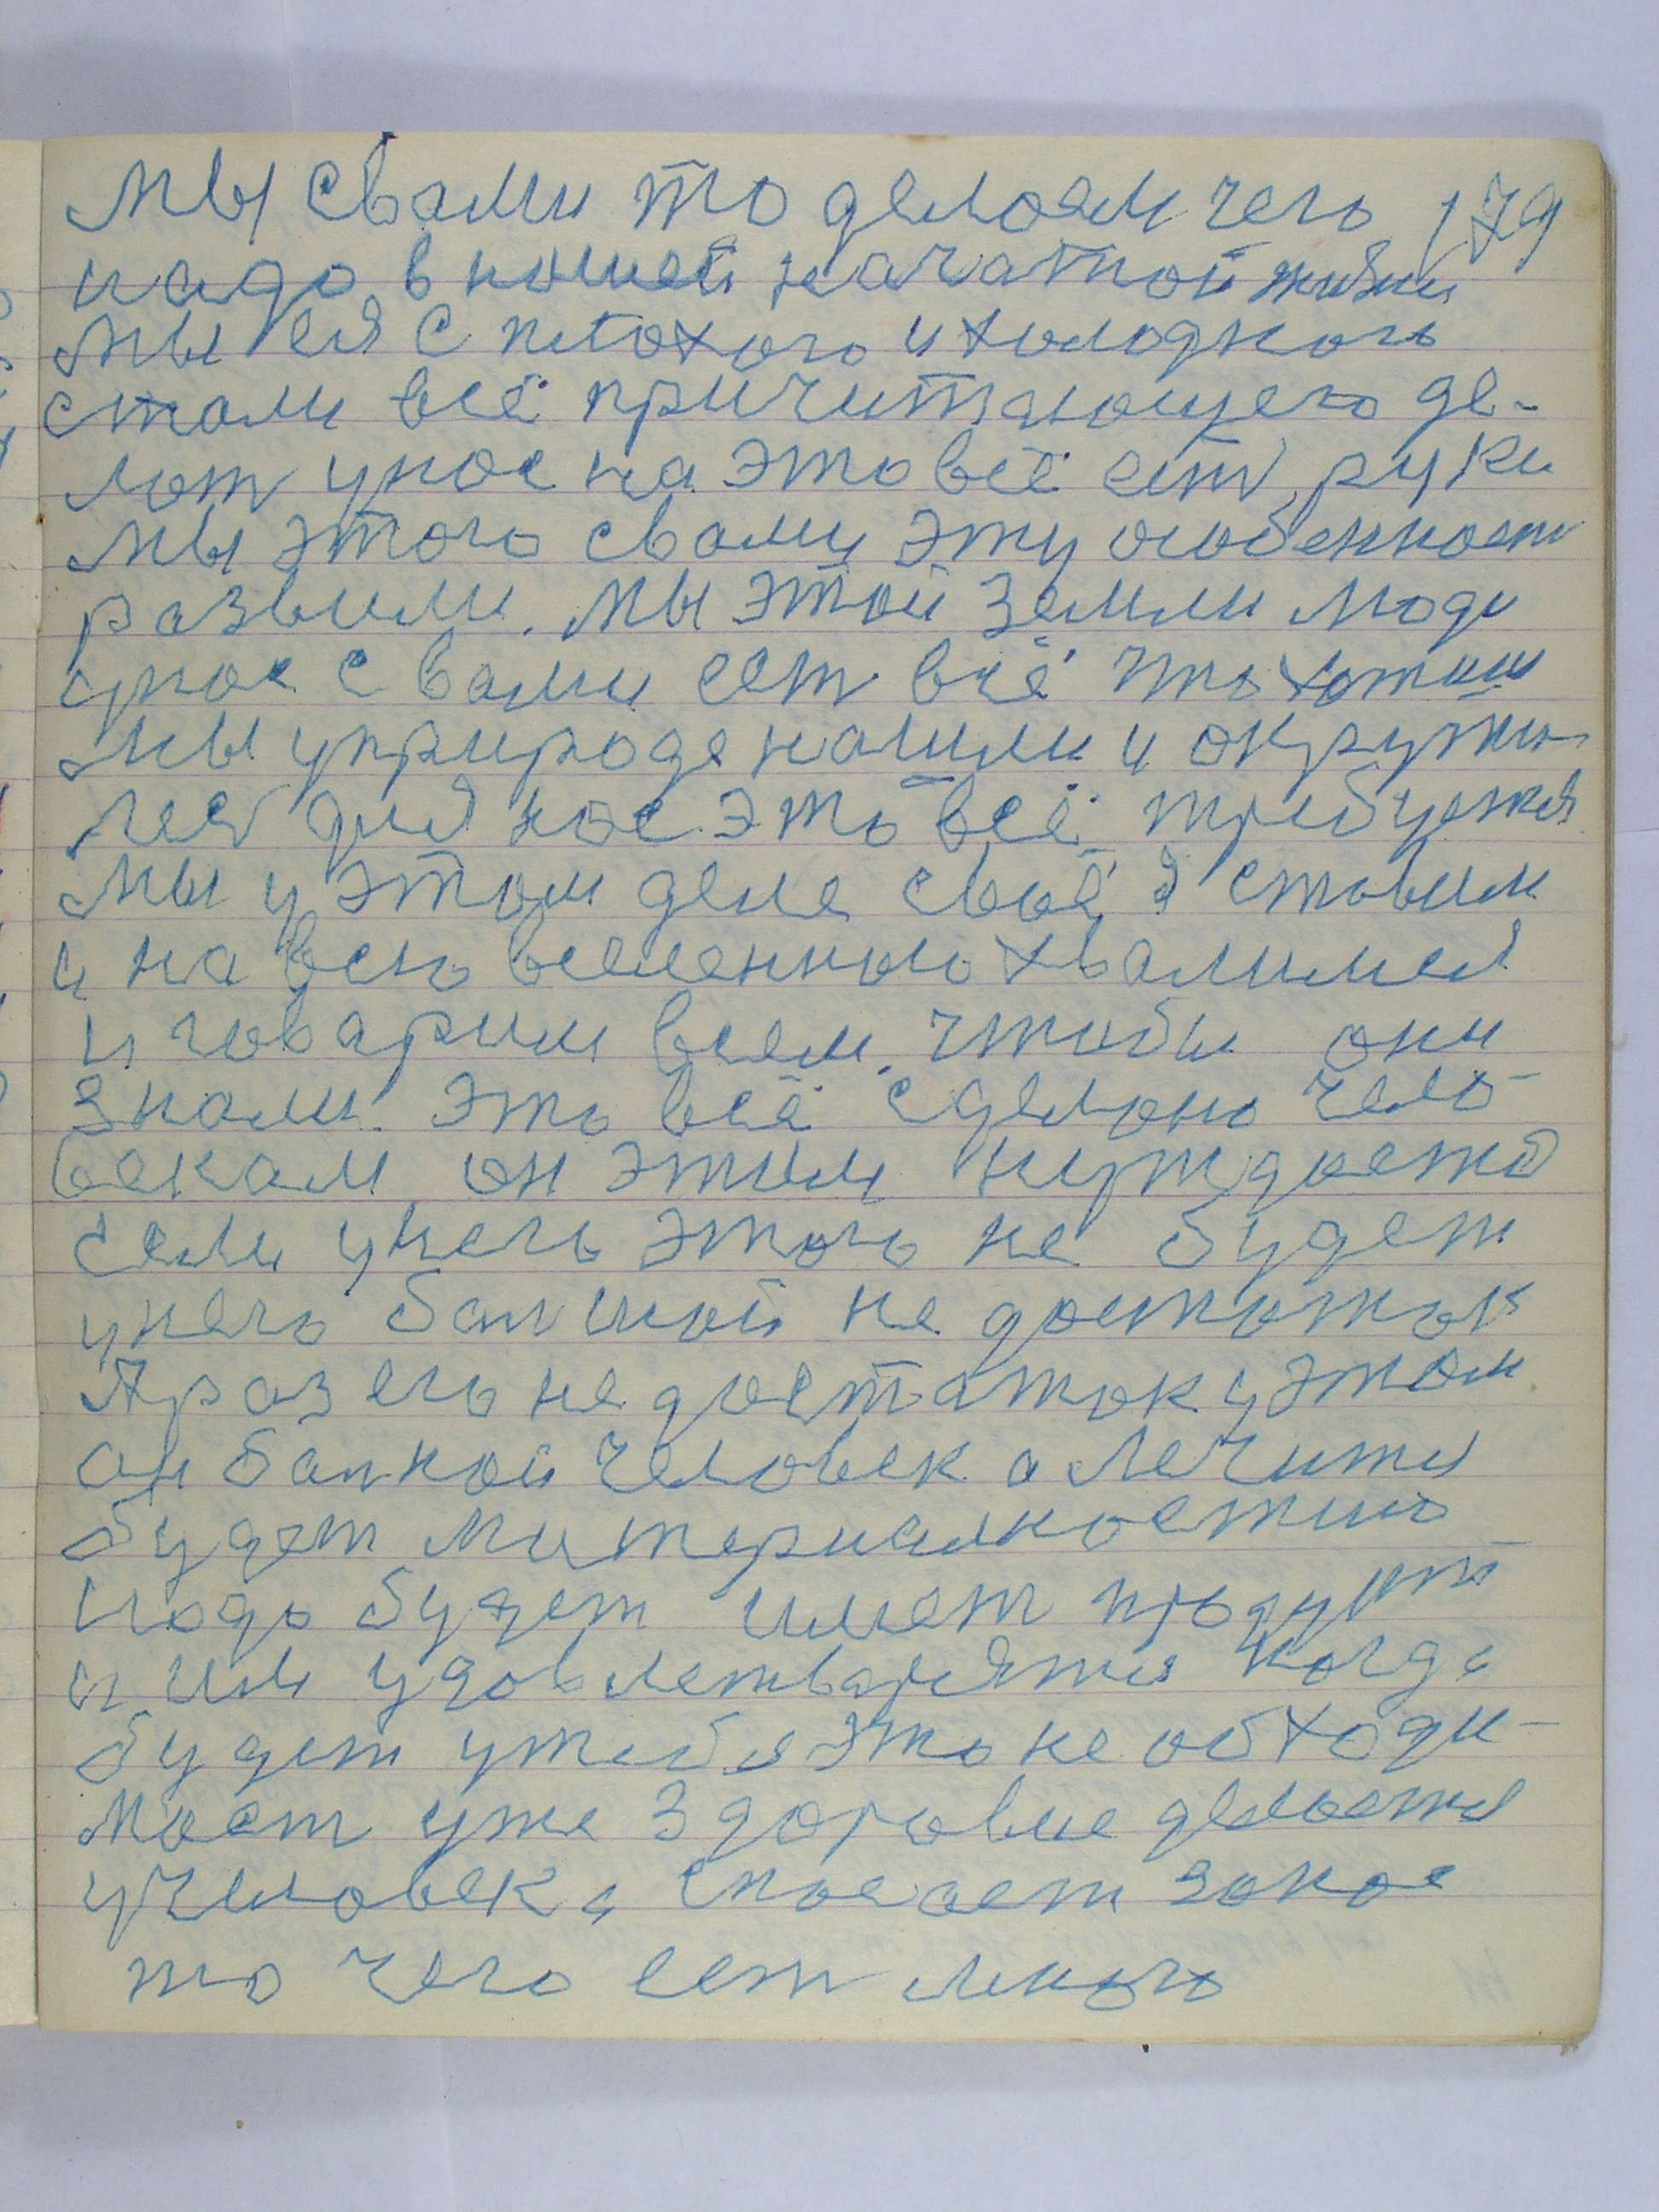 мы свами то делаем чего 179
надо в нашей начатной жизни
мы ея с плохого и холодного
стали всё причитающего де-
лат унас на это всё ест, руки
мы этого свами эту особенност
развили. Мы этой земли люди
унас с вами ест всё что хотиш
мы уприроде нашли и окружи-
лис для нас это всё требуется
мы у этом деле своё я ставим
и на всю вселенную хвалимся
и говарим всем, чтобы они
знали. Это всё сделано чело-
векам он этим нуждается
если унего этого не будет
унего балшой не достаток
А раз его не достаток у этом
он балной человек а лечится
будет материалностию
надо будет имет продукт
и им удовлетварятся когда
будет утебя это не обходи-
мост уже здоровие делается
учеловека спасает занас
то чего ест много